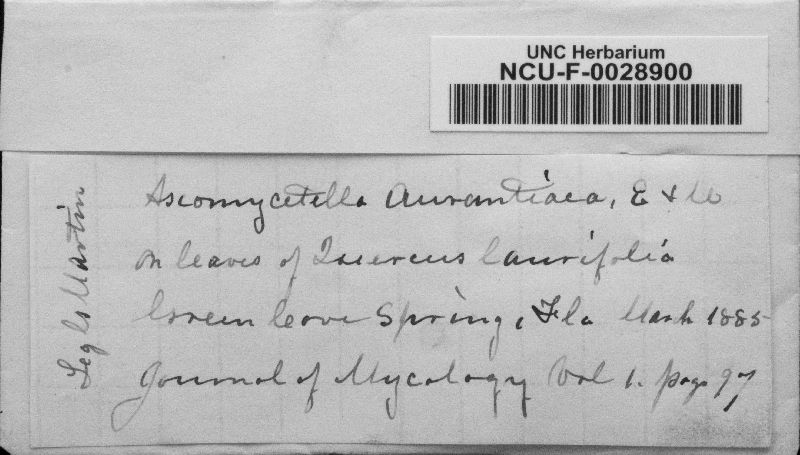 UNC Herbarium
NCU-F-0028900
Ascomycetella Aurantiaca, E & M
on leaves of Quercus laurifolia
Green Cove Spring, Fla March 1885
Journal of Mycology Vol 1. page 97
Leg Martin